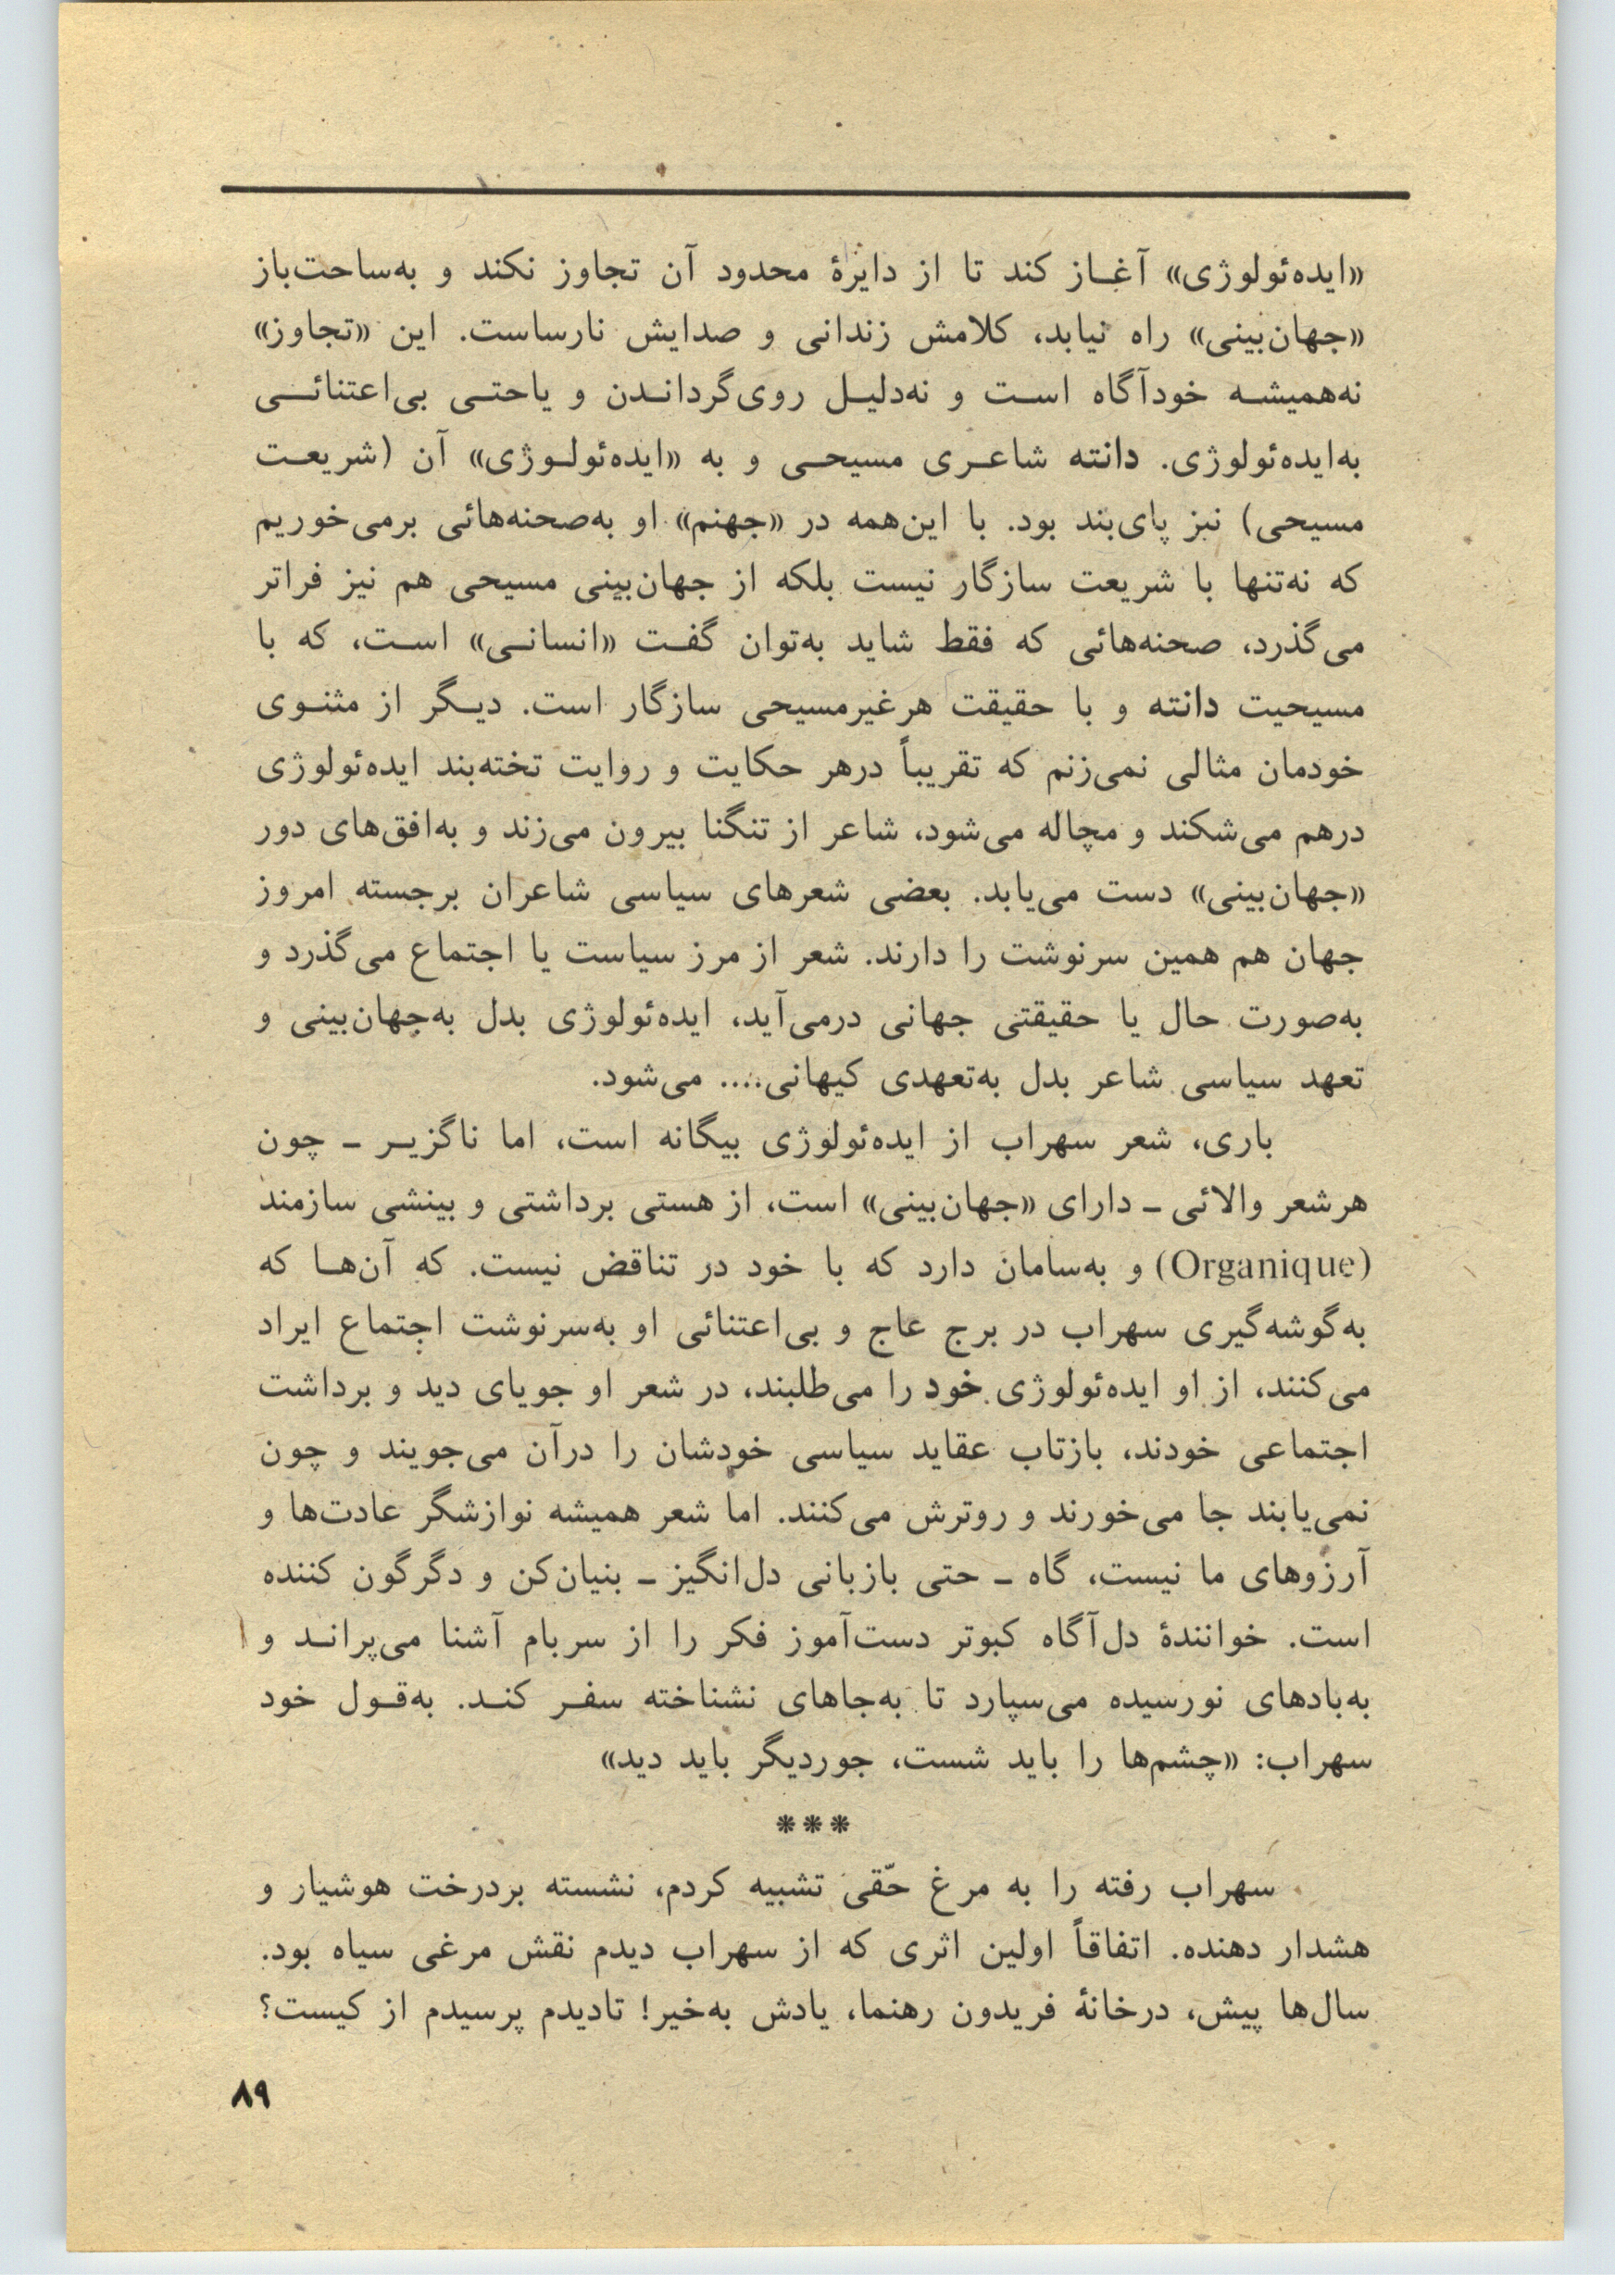 «ایده‌ئولوژی» آغاز کند تا از دایرهٔ محدود آن تجاوز نکند و به‌ساحت‌باز
«جهان‌بینی» راه نیابد، کلامش زندانی و صدایش نارساست. این «تجاوز»
نه‌همیشه خودآگاه است و نه‌دلیل روی‌گرداندن و یاحتی بی‌اعتنائی
به‌ایده‌ئولوژی. دانته شاعری مسیحی و به «ایده‌ئولوژی» آن (شریعت
مسیحی) نیز پای‌بند بود. با این‌همه در «جهنم» او به‌صحنه‌هائی برمی‌خوریم
که نه‌تنها با شریعت سازگار نیست بلکه از جهان‌بینی مسیحی هم نیز فراتر
می‌گذرد، صحنه‌هائی که فقط شاید به‌توان گفت «انسانی» است، که با
مسیحیت دانته و با حقیقت هرغیرمسیحی سازگار است. دیگر از مثنوی
خودمان مثالی نمی‌زنم که تقریباً درهر حکایت و روایت تخته‌بند ایده‌ئولوژی
درهم می‌شکند و مچاله می‌شود، شاعر از تنگنا بیرون می‌زند و به‌افق‌های دور
«جهان‌بینی» دست می‌یابد. بعضی شعرهای سیاسی شاعران برجسته امروز
جهان هم همین سرنوشت را دارند. شعر از مرز سیاست یا اجتماع می‌گذرد و
به‌صورت حال یا حقیقتی جهانی درمی‌آید، ایده‌ئولوژی بدل به‌جهان‌بینی و
تعهد سیاسی شاعر بدل به‌تعهدی کیهانی.... می‌شود.
باری، شعر سهراب از ایده‌ئولوژی بیگانه است، اما ناگزیر ـ چون
هرشعر والائی ـ دارای «جهان‌بینی» است، از هستی برداشتی و بینشی سازمند
(Organique) و به‌سامان دارد که با خود در تناقض نیست. که آن‌ها که
به‌گوشه‌گیری سهراب در برج عاج و بی‌اعتنائی او به‌سرنوشت اجتماع ایراد
می‌کنند، از او ایده‌ئولوژی خود را می‌طلبند، در شعر او جویای دید و برداشت
اجتماعی خودند، بازتاب عقاید سیاسی خودشان را درآن می‌جویند و چون
نمی‌یابند جا می‌خورند و روترش می‌کنند. اما شعر همیشه نوازشگر عادت‌ها و
آرزوهای ما نیست، گاه ـ حتی بازبانی دل‌انگیز ـ بنیان‌کن و دگرگون کننده
است. خوانندهٔ دل‌آگاه کبوتر دست‌آموز فکر را از سربام آشنا می‌پراند و
به‌بادهای نورسیده می‌سپارد تا به‌جاهای نشناخته سفر کند. به‌قول خود
سهراب: «چشم‌ها را باید شست، جوردیگر باید دید»
***
سهراب رفته را به مرغ حّقی تشبیه کردم، نشسته بردرخت هوشیار و
هشدار دهنده. اتفاقاً اولین اثری که از سهراب دیدم نقش مرغی سیاه بود.
سال‌ها پیش، درخانهٔ فریدون رهنما، یادش به‌خیر! تادیدم پرسیدم از کیست؟
۸۹